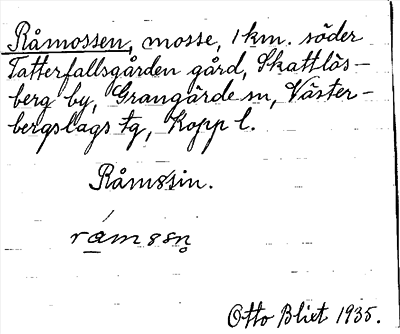 Råmossen, mosse, 1 km. söder
Tatterfallsgården gård, Skattlös-
berg by, Grangärde sn, Väster-
bergslags tg, Kopp l.
Råmssin.
Otto Blixt 1935.